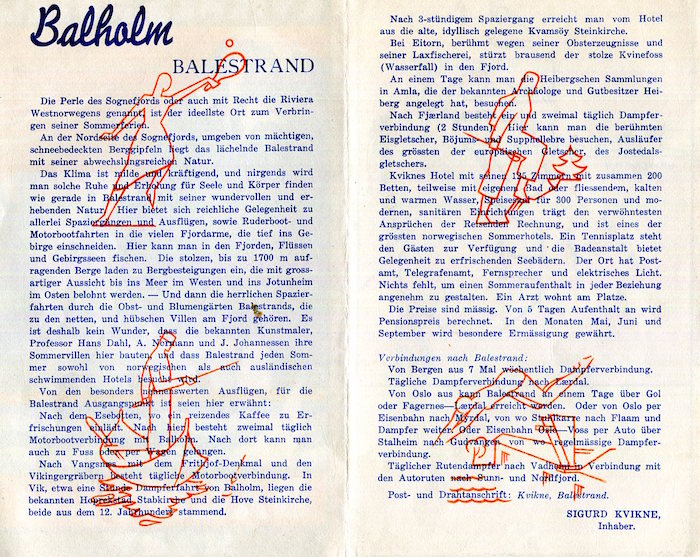 Balholm
BALESTRAND
Die Perle des Sognefjords oder auch mit Recht die Riviera
Westnorwegens genannt, ist der ideellste Ort zum Verbrin-
gen seiner Sommerferien.
An der Nordseite des Sognefjords, umgeben von mächtigen,
schneebedeckten Bergzipfeln liegt das lächelnde Balestrand
mit seiner abwechslungsreichen Natur.
Das Klima ist milde und kräftigend, und nirgends wird
man solche Ruhe und Erholung für Seele und Körper finden
wie gerade in Balestrand mit seiner wundervollen und er-
hebenden Natur. Hier bietet sich reichliche Gelegenheit zu
allerlei Spaziergängen und Ausflügen, sowie Ruderboot- und
Motorbootfahrten in die vielen Fjordarme, die tief ins Ge-
birge einschneiden. Hier kann man in den Fjorden, Flüssen
und Gebirgsseen fischen. Die stolzen, bis zu 1700 m auf-
ragenden Berge laden zu Bergbesteigungen ein, die mit gross-
artiger Aussicht bis ins Meer im Westen und ins Jotunheim
im Osten belohnt werden. — Und dann die herrlichen Spazier-
fahrten durch die Obst- und Blumengärten Balestrands, die
zu den netten, und hübschen Villen am Fjord gehören. Es
ist deshalb kein Wunder, dass die bekannten Kunstmaler,
Professor Hans Dahl, A. Normann und J. Johannessen ihre
Sommervillen hier bauten und dass Balestrand jeden Som-
mer sowohl von norwegischen als auch ausländischen
schwimmenden Hotels besucht wird.
Von den besonders nennenswerten Ausflügen, für die
Balestrand Ausgangspunkt ist seien hier erwähnt:
Nach dem Esebotten, wo ein reizendes Kaffee zu Er-
frischungen einlädt. Nach hier besteht zweimal täglich
Motorbootverbindung mit Balholm. Nach dort kann man
auch zu Fuss oder per Wagen gelangen.
Nach Vangsnes mit dem Frithjof-Denkmal und den
Vikingergräbern besteht tägliche Motorbootverbindung. In
Vik, etwa eine Stunde Dampferfahrt von Balholm, liegen die
bekannten Hoprekstad Stabkirche und die Hove Steinkirche,
beide aus dem 12. Jahrhundert stammend.
Nach 3-stündigem Spaziergang erreicht man vom Hotel
aus die alte, idyllisch gelegene Kvamsöy Steinkirche.
Bei Eitorn, berühmt wegen seiner Obsterzeugnisse und
seiner Laxfischerei, stürzt brausend der stolze Kvinefoss
(Wasserfall) in den Fjord.
An einem Tage kann man die Heibergschen Sammlungen
in Amla, die der bekannten Archäologe und Gutbesitzer Hei-
berg angelegt hat, besuchen.
Nach Fjærland besteht ein und zweimal täglich Dampfer-
verbindung (2 Stunden). Hier kann man die berühmten
Eisgletscher, Böjums- und Supphellebre besuchen, Ausläufer
des grössten der europäischen Gletscher, des Jostedals-
gletschers.
Kviknes Hotel mit seinen 125 Zimmern mit zusammen 200
Betten, teilweise mit eignem Bad oder fliessendem, kalten
und warmen Wasser, Speisesaal für 300 Personen und mo-
dernen, sanitären Einrichtungen trägt den verwöhntesten
Ansprüchen der Reisenden Rechnung, und ist eines der
grössten norwegischen Sommerhotels. Ein Tennisplatz steht
den Gästen zur Verfügung und die Badeanstalt bietet
Gelegenheit zu erfrischenden Seebädern. Der Ort hat Post-
amt, Telegrafenamt, Fernsprecher und elektrisches Licht.
Nichts fehlt, um einen Sommeraufenthalt in jeder Beziehung
angenehm zu gestalten. Ein Arzt wohnt am Platze.
Die Preise sind mässig. Von 5 Tagen Aufenthalt an wird
Pensionspreis berechnet. In den Monaten Mai, Juni und
September wird besondere Ermässigung gewährt.
Verbindungen nach Balestrand:
Von Bergen aus 7 Mal wöchentlich Dampferverbindung.
Tägliche Dampferverbindung nach Lærdal.
Von Oslo aus kann Balestrand an einem Tage über Gol
oder Fagernes—Lærdal erreicht werden. Oder von Oslo per
Eisenbahn nach Myrdal, von wo Stuhlkarre nach Flaam und
Dampfer weiter. Oder Eisenbahn Oslo—Voss per Auto über
Stalheim nach Gudvangen von wo regelmässige Dampfer-
verbindung.
Täglicher Rutendampfer nach Vadheim in Verbindung mit
den Autoruten nach Sunn- und Nordfjord.
Post- und Drahtanschrift: Kvikne, Balestrand.
SIGURD KVIKNE,
Inhaber.